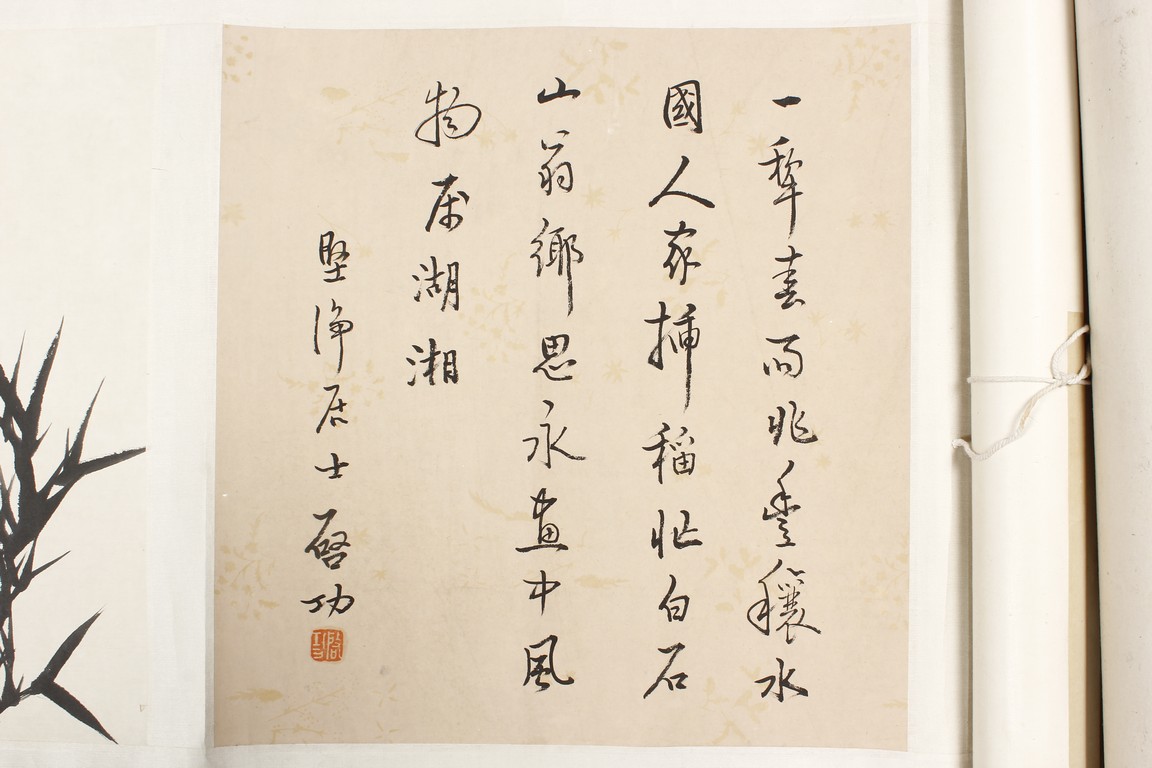 一犂春雨兆豐穰水
國人家插稻忙白石
山翁鄉思永畫中風
物属湖湘
堅淨居士啓功
啓功